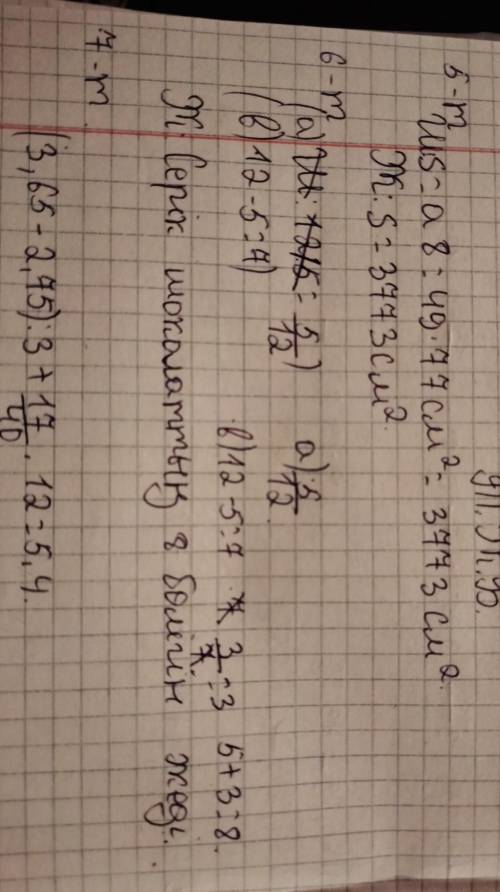 5-т
Ш: S=a b=49·77см²=3773см²
Ж: S=3773см².
6-т
(а) 5/12) а) 5/12.
(в) 12-5=7) в) 12-5=7 · 3/7=3 5+3=8.
Ж: Серік шоколаттың 8 бөлігін жеді.
7-т
(3,65-2,75):3+17/40·12=5,4.